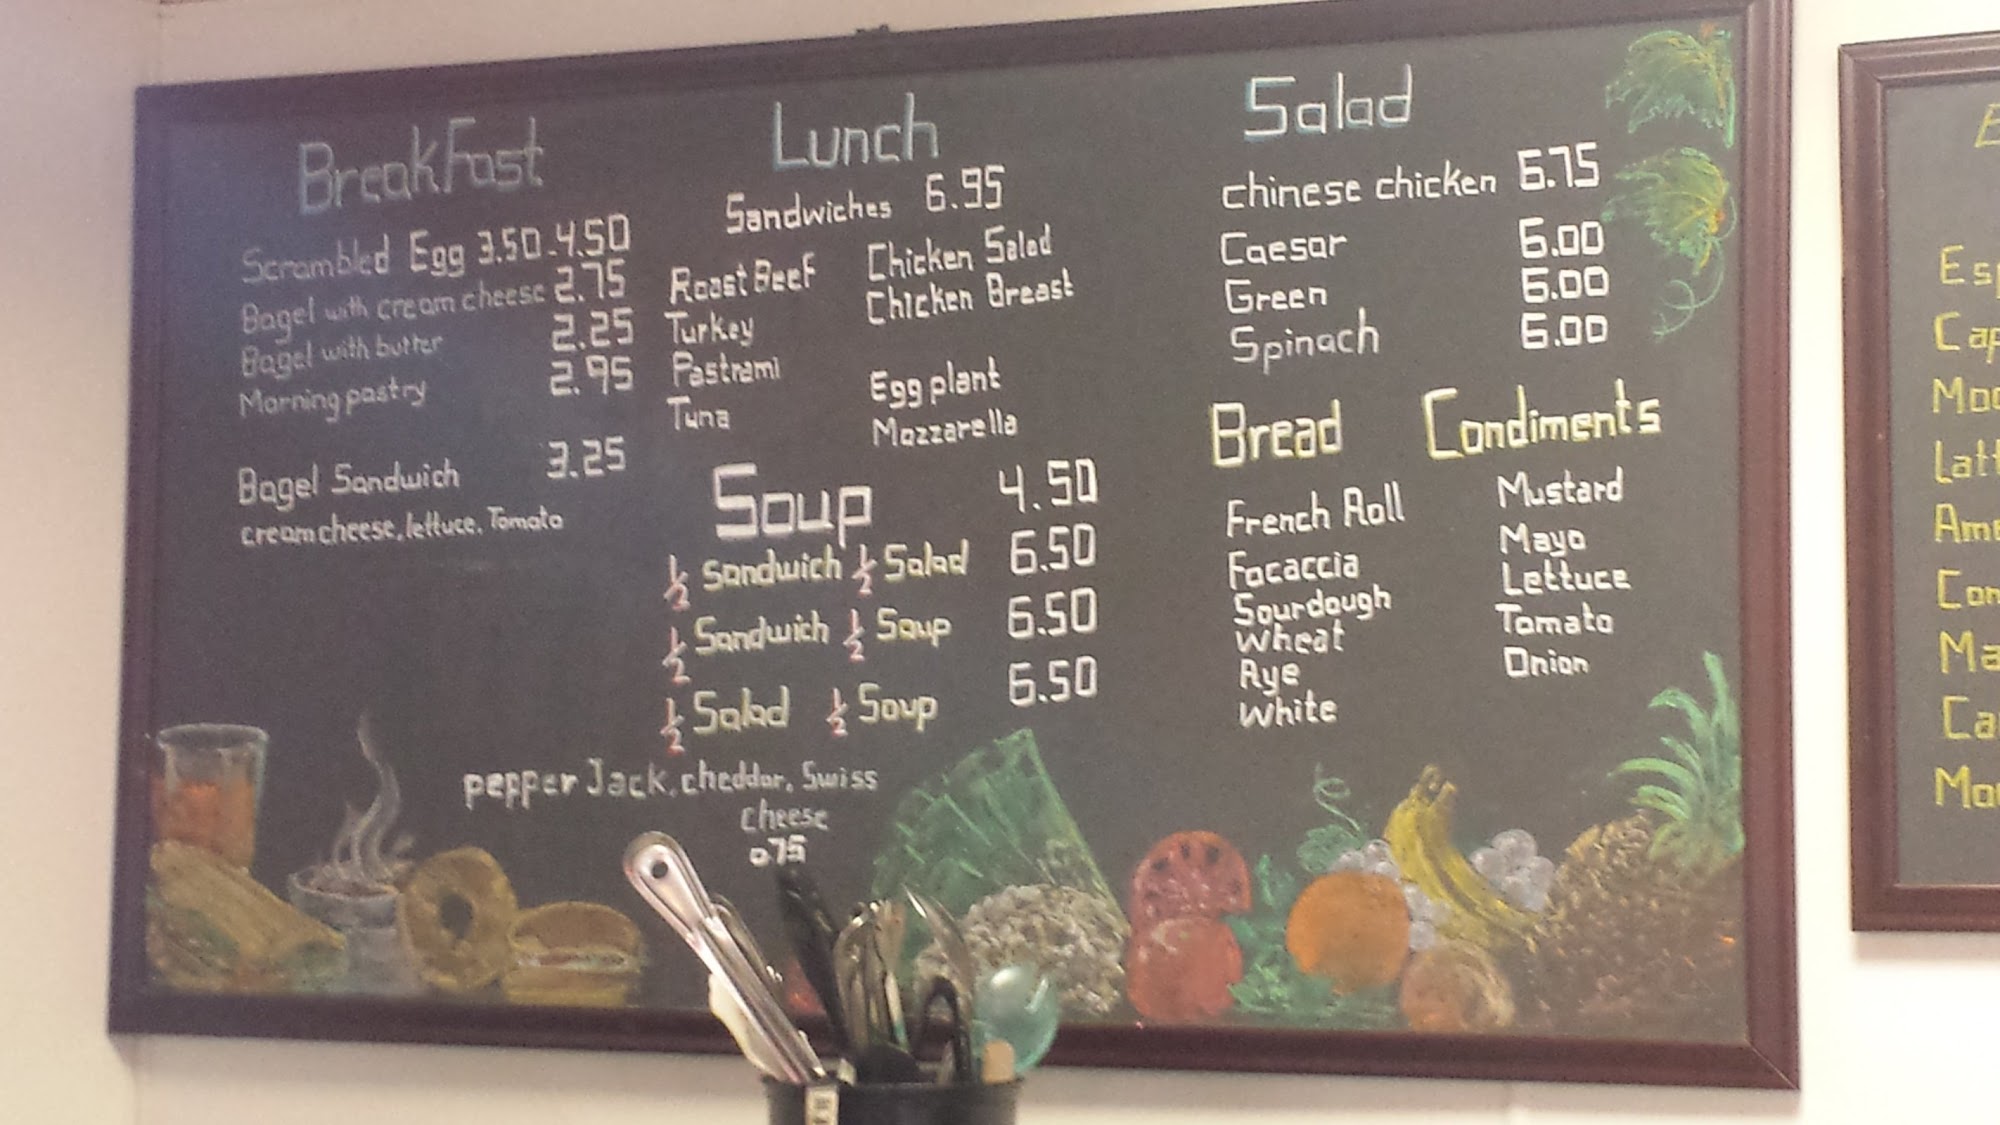 BreakFast
Scrambled Egg 3.50-4.50
Bagel with cream cheese 2.75
Bagel with butter 2.25
Morning pastry 2.95
Bagel Sandwich 3.25
cream cheese, lettuce. Tomato
Lunch
Sandwiches 6.95
Roast Beef
Turkey
Pastrami
Tuna
Chicken Salad
Chicken Breast
Egg plant
Mozzarella
Soup 4.50
1/2 Sandwich 1/2 Salad 6.50
1/2 Sandwich 1/2 Soup 6.50
1/2 Salad 1/2 Soup 6.50
pepper Jack, cheddar, Swiss
cheese
0.75
Salad
chinese chicken 6.75
Caesar 6.00
Green 6.00
Spinach 6.00
Bread
French Roll
Focaccia
Sourdough
Wheat
Rye
White
Condiments
Mustard
Mayo
Lettuce
Tomato
Onion
Esp
Cap
Moc
Latt
Ame
Con
Ma
Ca
Mo